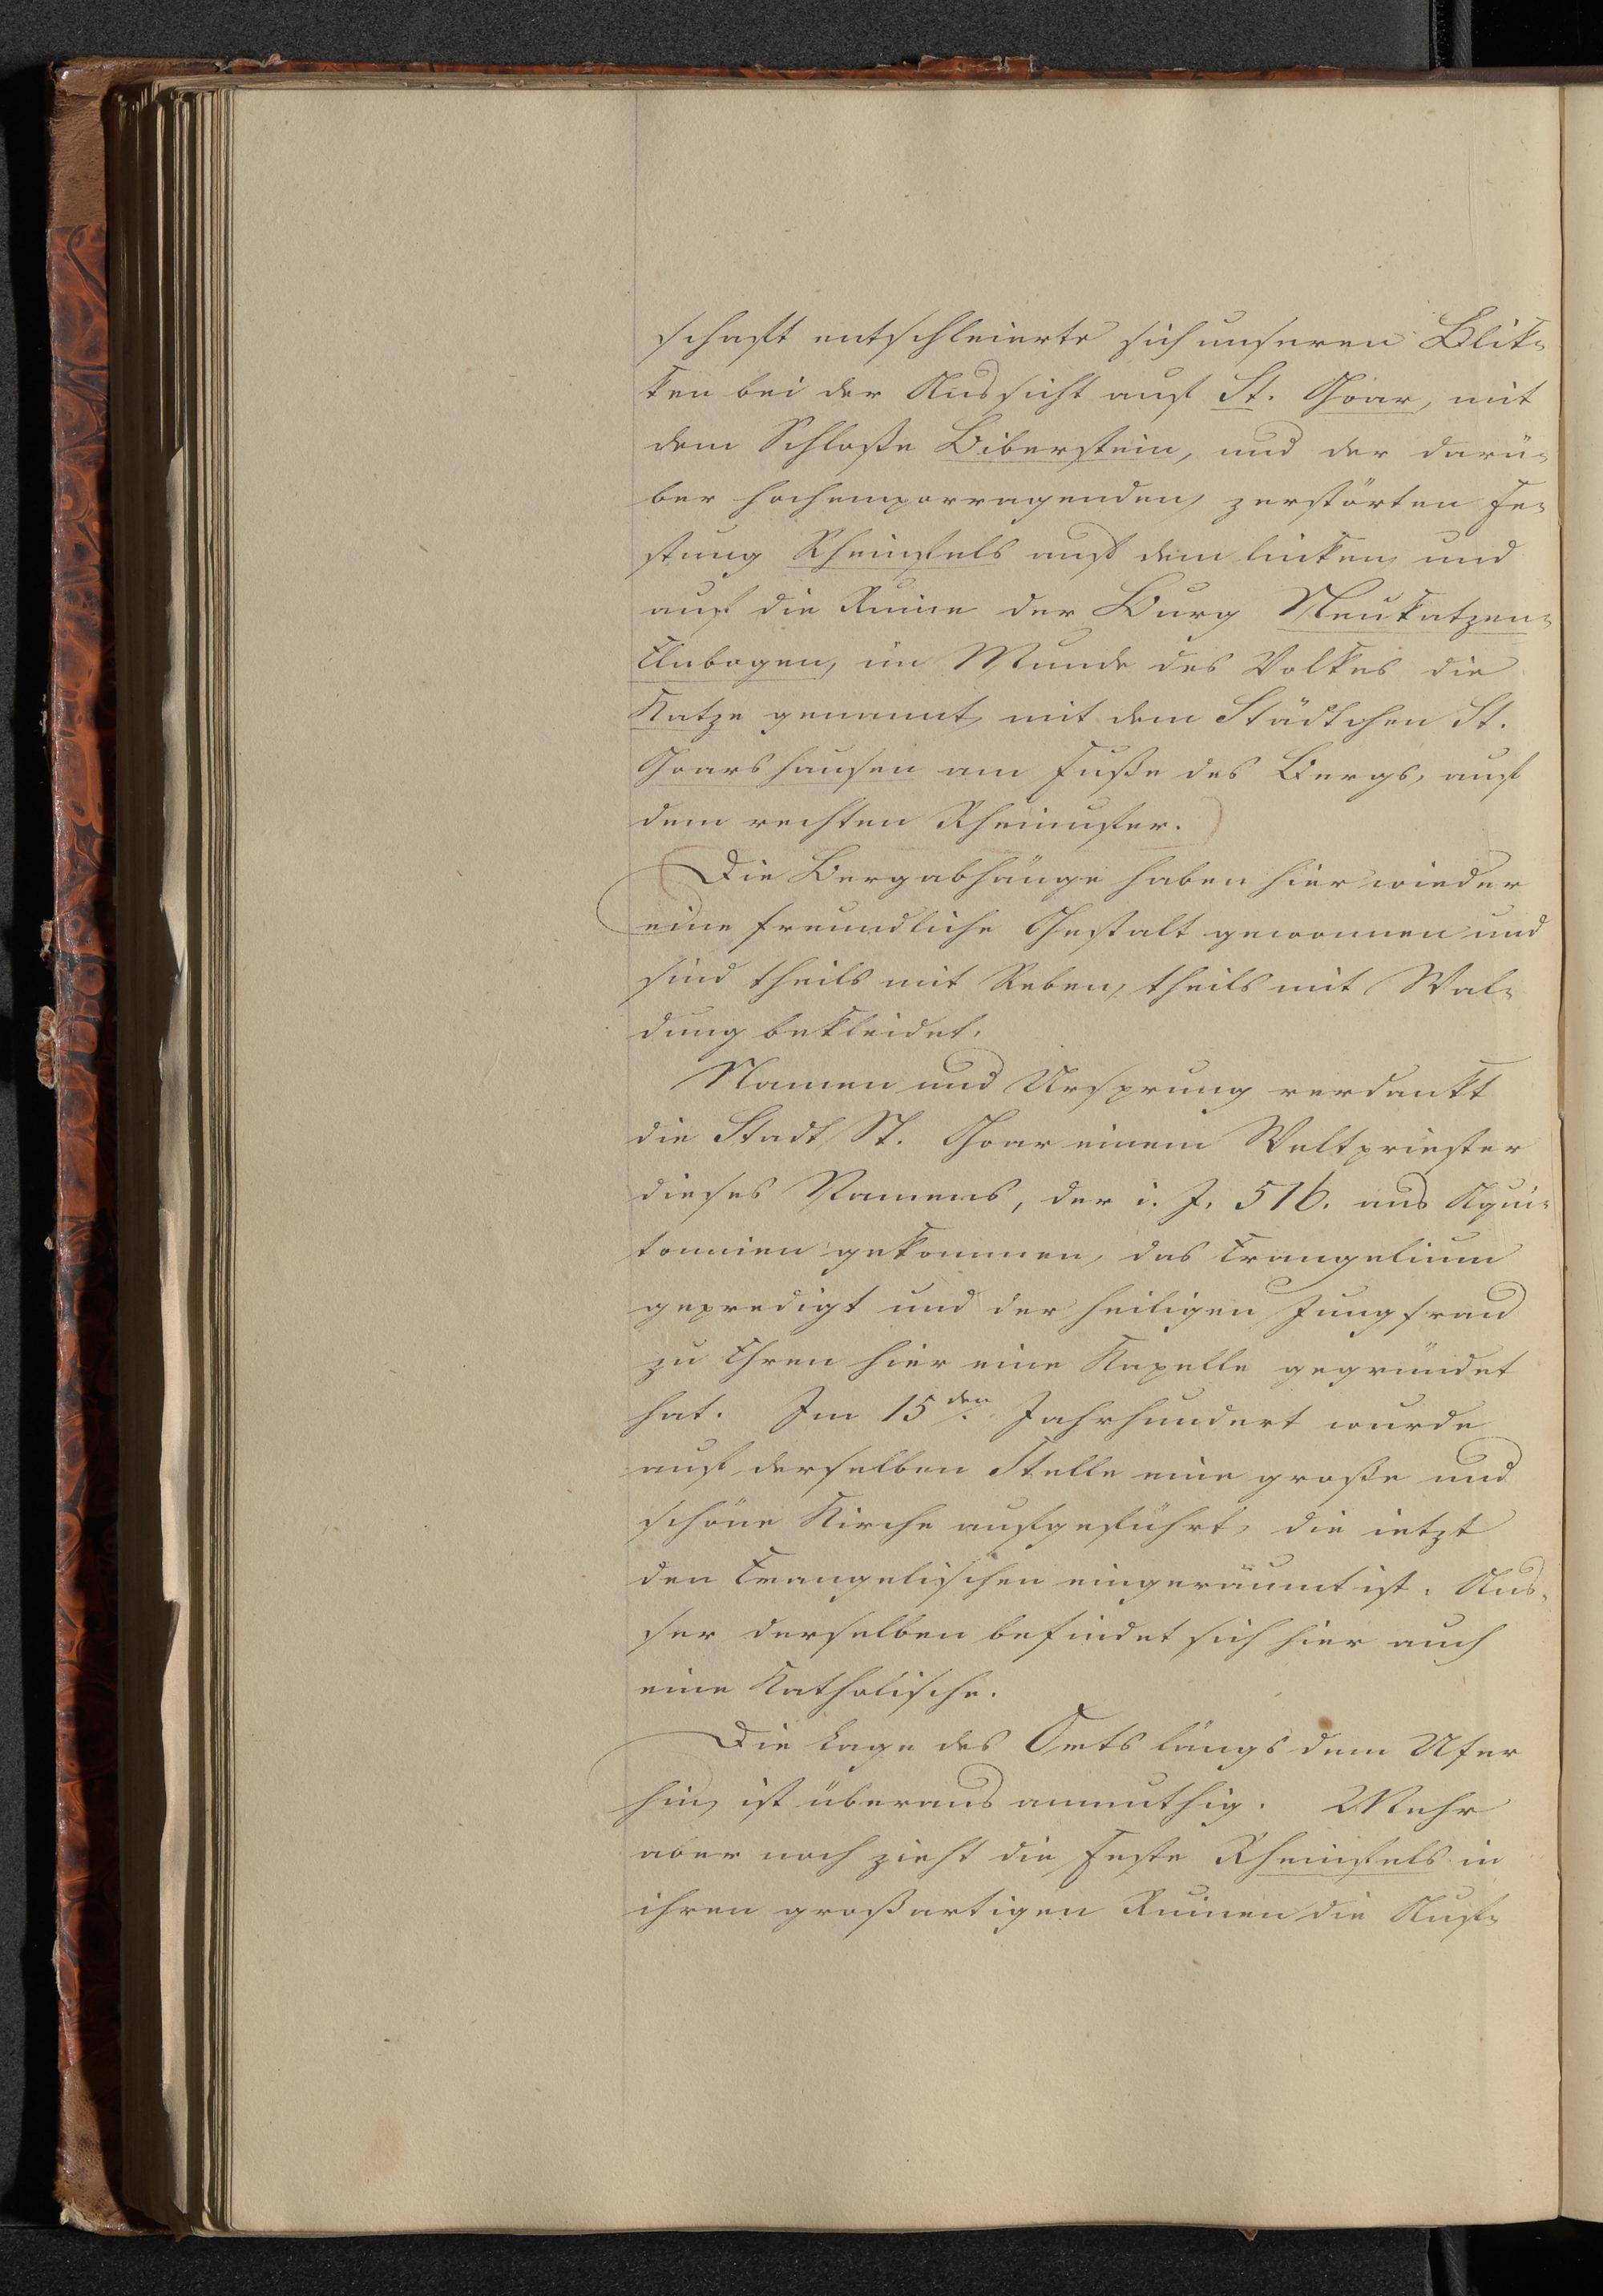 schaft entschleierte sich unseren Blik-
ken bei der Aussicht auf St. Goar, mit
dem Schloße Biberstein, und der darü-
ber hochemporragenden, zerstörten Fe-
stung Rheinfels auf dem linken, und
auf die Ruine der Burg Neukatzen-
Elnbogen, im Munde des Volkes die
Katze genannt, mit dem Städtchen St.
Goarshausen am Fuße des Bergs, auf
dem rechten Rheinufer.
Die Bergabhänge haben hier wieder
eine freundliche Gestalt gewonnen und
sind theils mit Reben, theils mit Wal-
dung bekleidet.
Namen und Ursprung verdankt
die Stadt St. Goar einem Weltpriester
dieses Namens, der i. J. 516. aus Aqui-
tannien gekommen, das Evangelium
gepredigt und der heiligen Jungfrau
zu Ehren hier eine Kapelle gegründet
hat. Im 15den Jahrhundert wurde
auf derselben Stelle eine große und
schöne Kirche aufgeführt, die ietzt
den Evangelischen eingeräumt ist. Aus-
ser derselben befindet sich hier auch
eine Katholische.
Die Lage des Orts längs dem Ufer
hin, ist überaus anmuthig. Mehr
aber noch zieht die Feste Rheinfels in
ihren großartigen Ruinen die Auf-